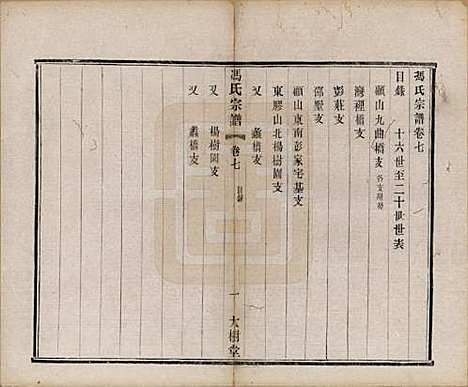 馮氏宗譜卷七
目錄　十六世至二十世世表
顧山九曲橋支
灣裡橋支
彭莊支
邵墅支
顧山東南彭家宅基支
東膠山北楊樹園支
又　蠡橋支
馮氏宗譜　卷七　目錄　一　大樹堂
又　楊樹園支
又　蠡橋支